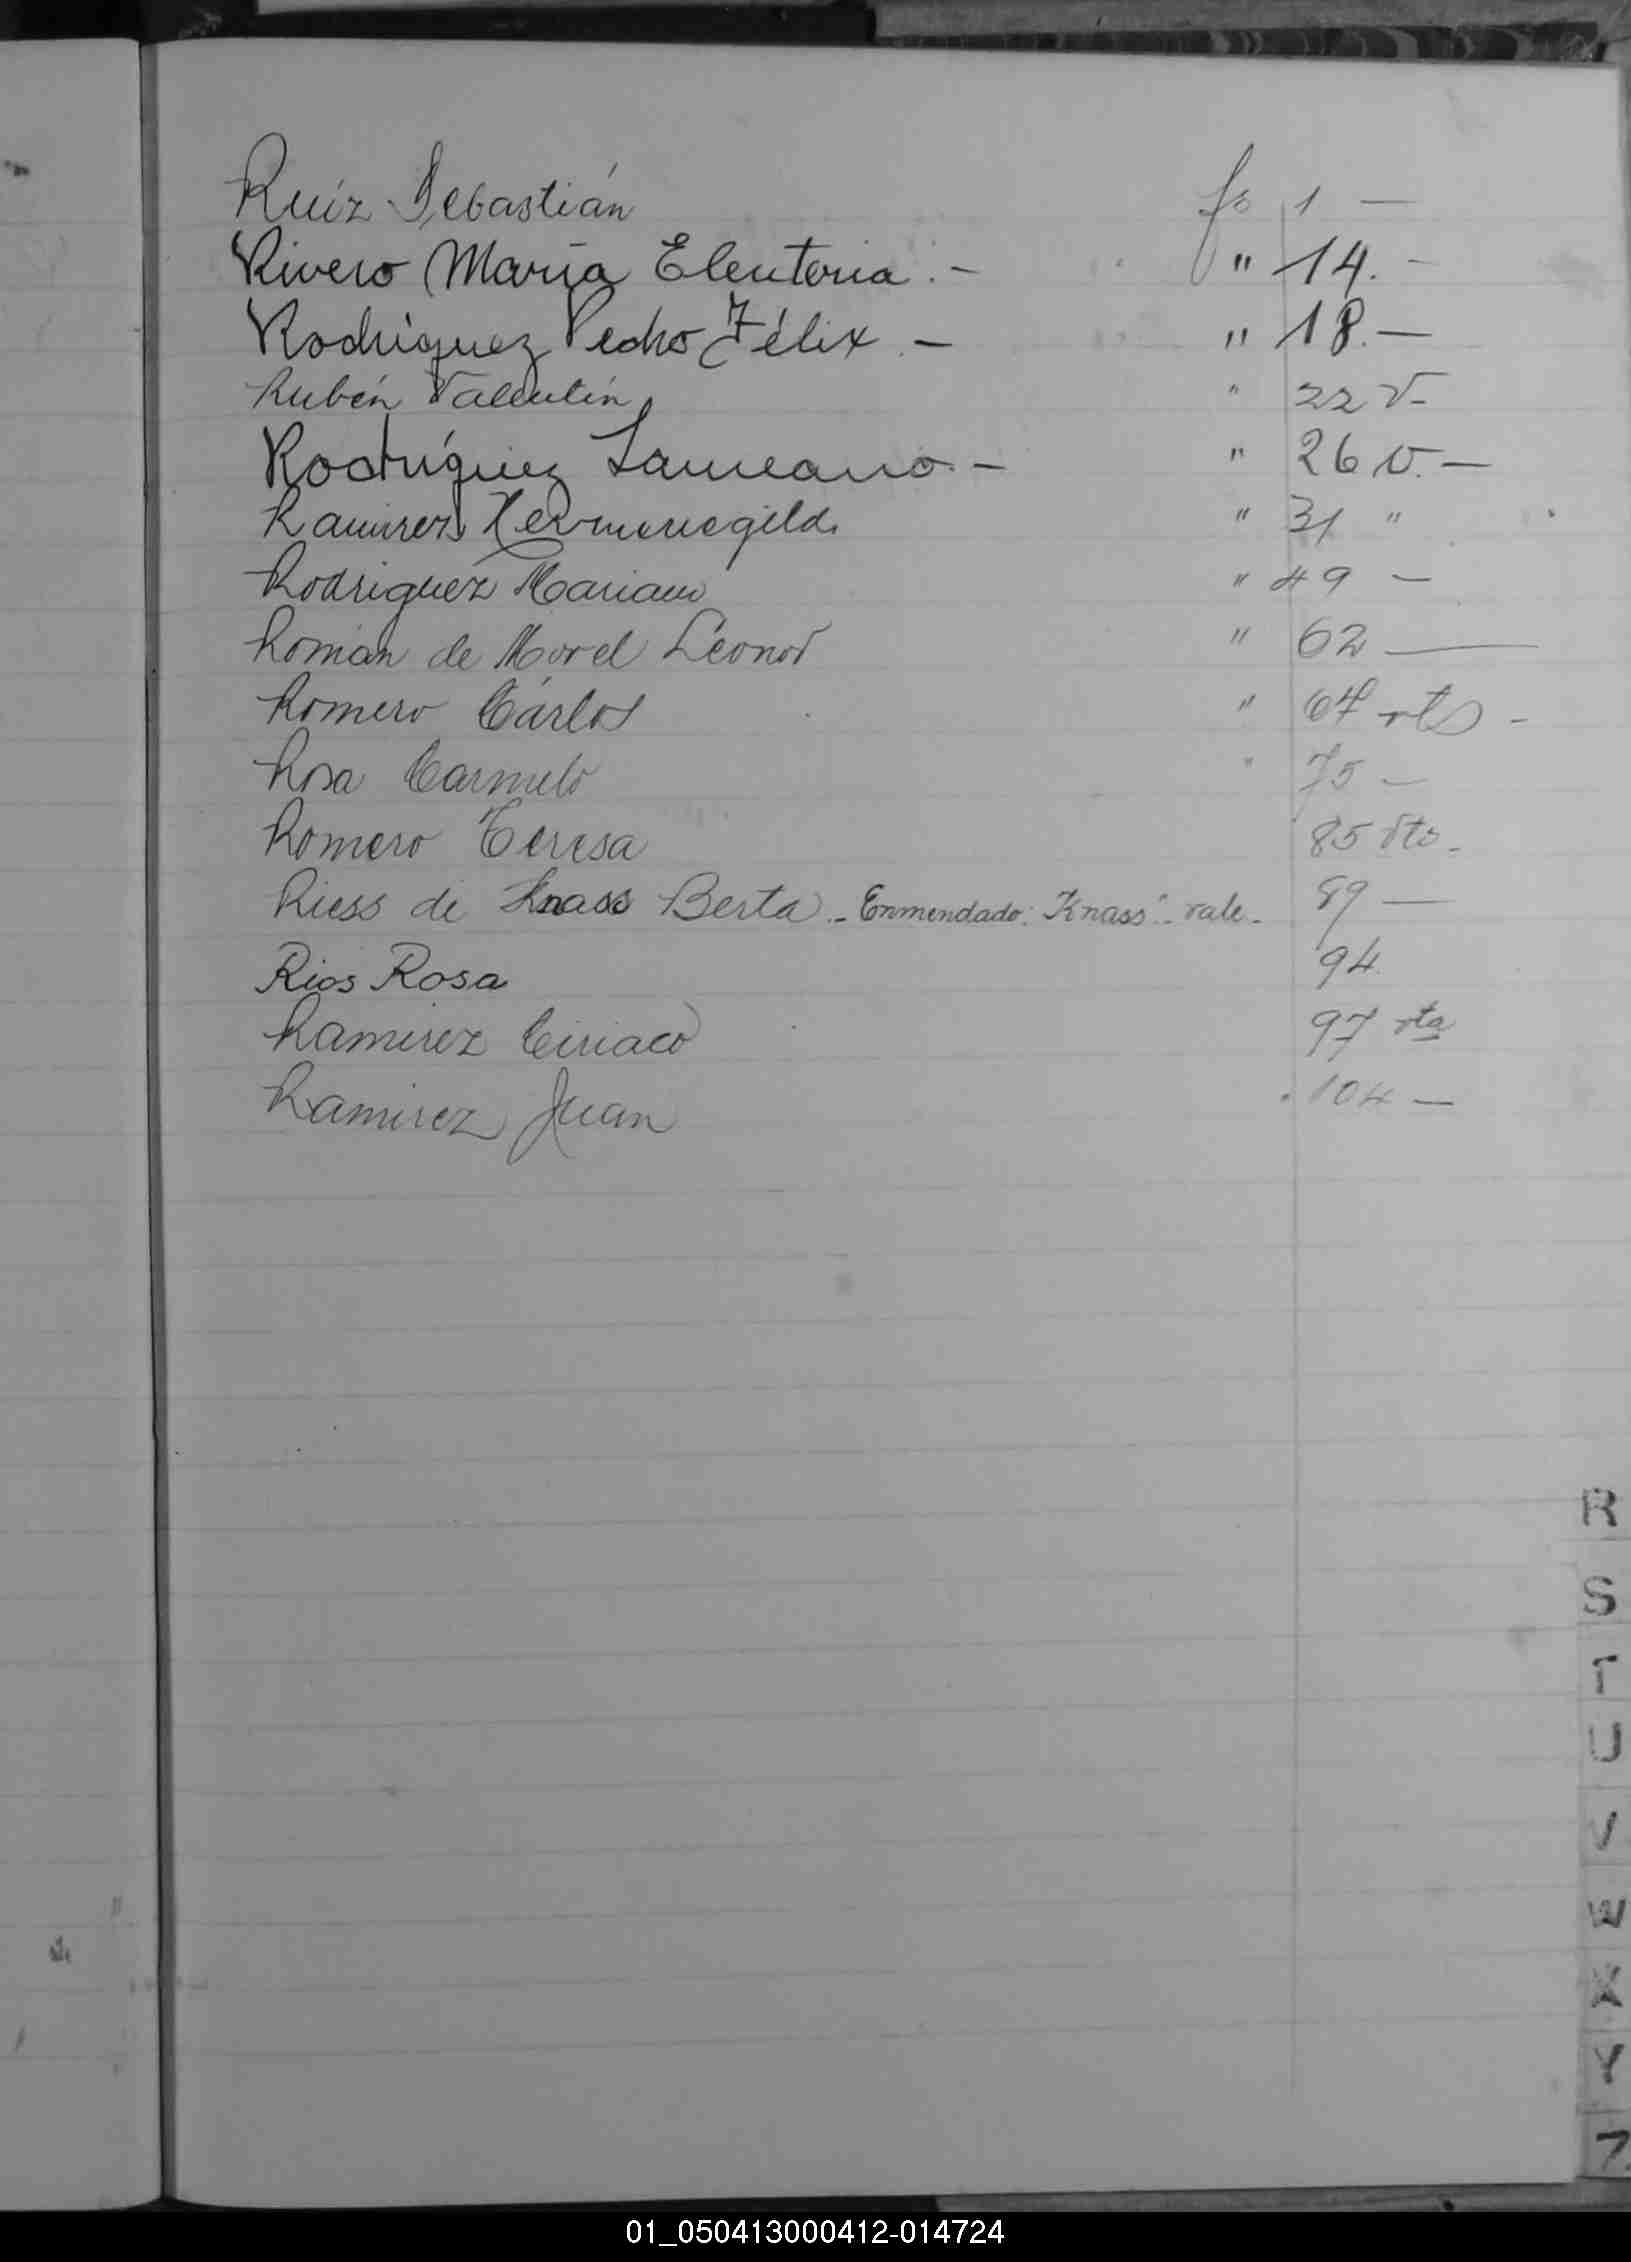 Ruíz Sebastián fo 1 —
Rivero María Eleuteria. — " 14. —
Rodríguez Pedro Félix — " 18. —
Rubén Valentín " 22 v—
Rodríguez Laureano. — " 26 v. —
Ramirez Hermenegildo " 31 "
Rodriguez Mariano " 49 —
Román de Morel Leonor " 62 —
Romero Cárlos " 64 vto —
Rosa Carmelo " 75 —
Romero Teresa 85 vto.
Riess de Knass Berta. - Enmendado: "Knass" - vale. 89 —
Rios Rosa 94
Ramirez Ciriaco 97 vta
Ramirez Juan 104 —
R
S
T
U
V
W
X
Y
Z
01_050413000412-014724